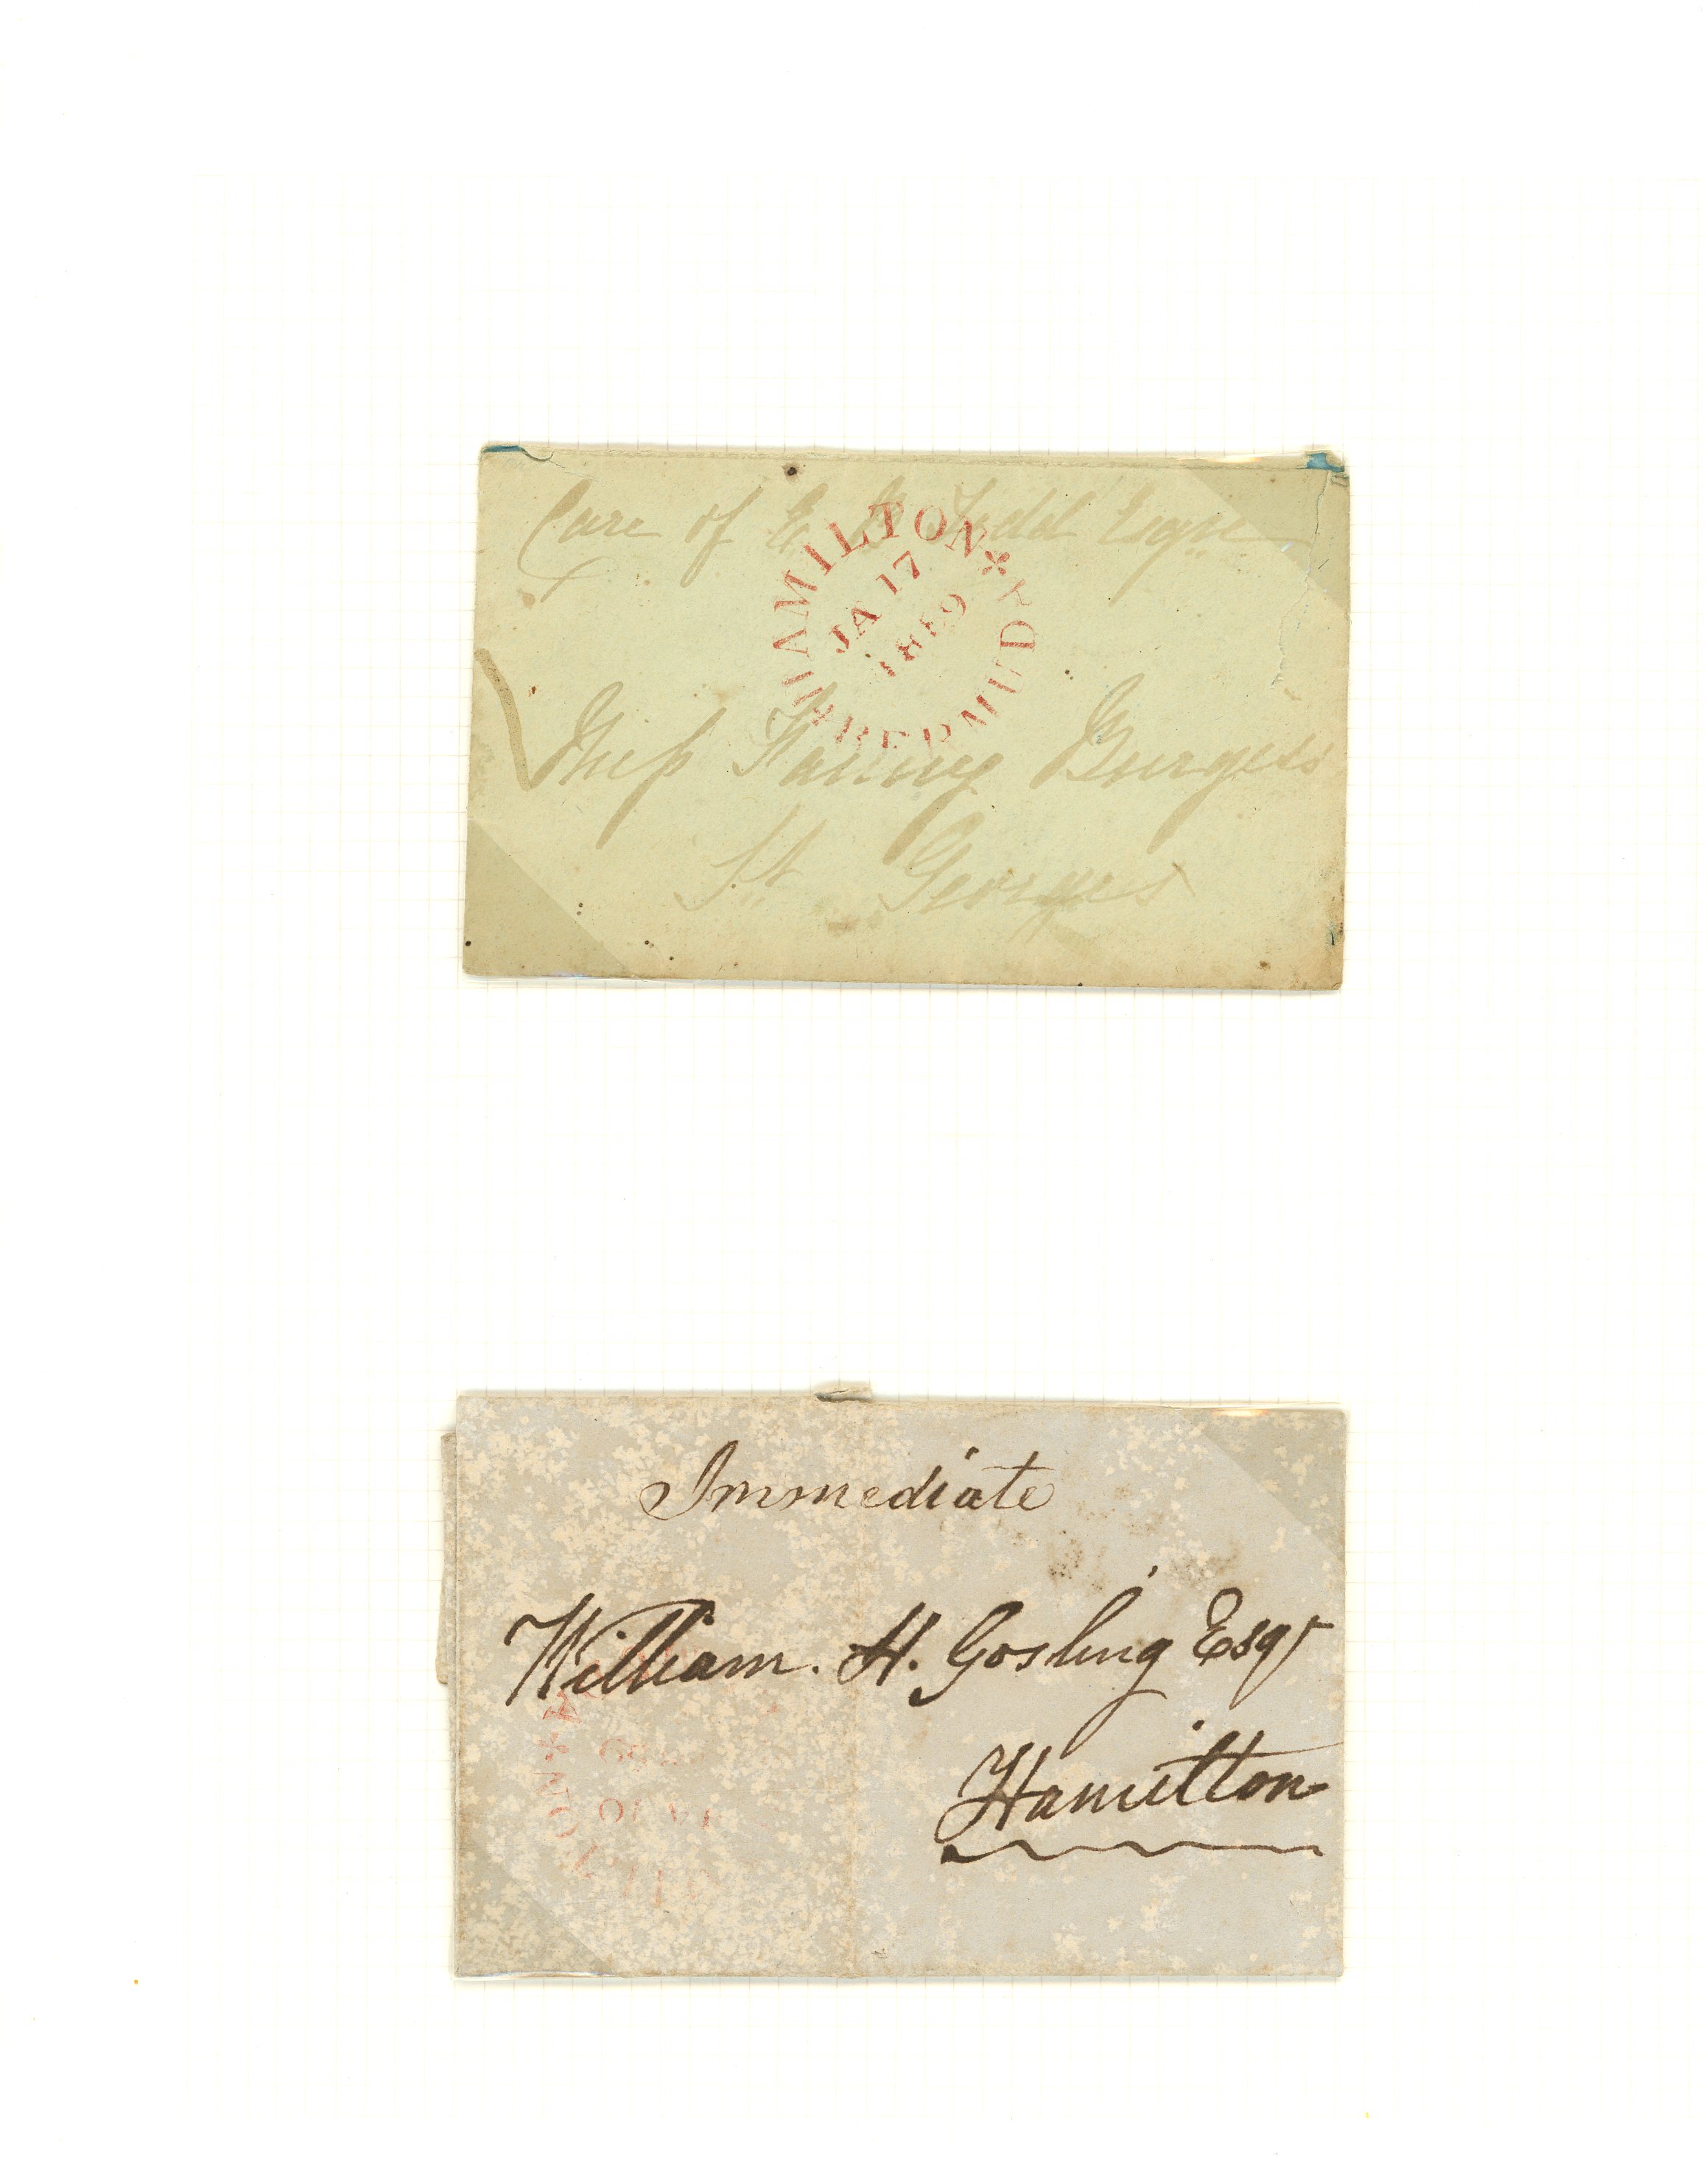 Care of E Todd Esqre
HAMILTON
JA 17
1859
BERMUD
Miss Fanny Burgess
St. Georges
Immediate
William. H. Gosling Esqr
Hamilton